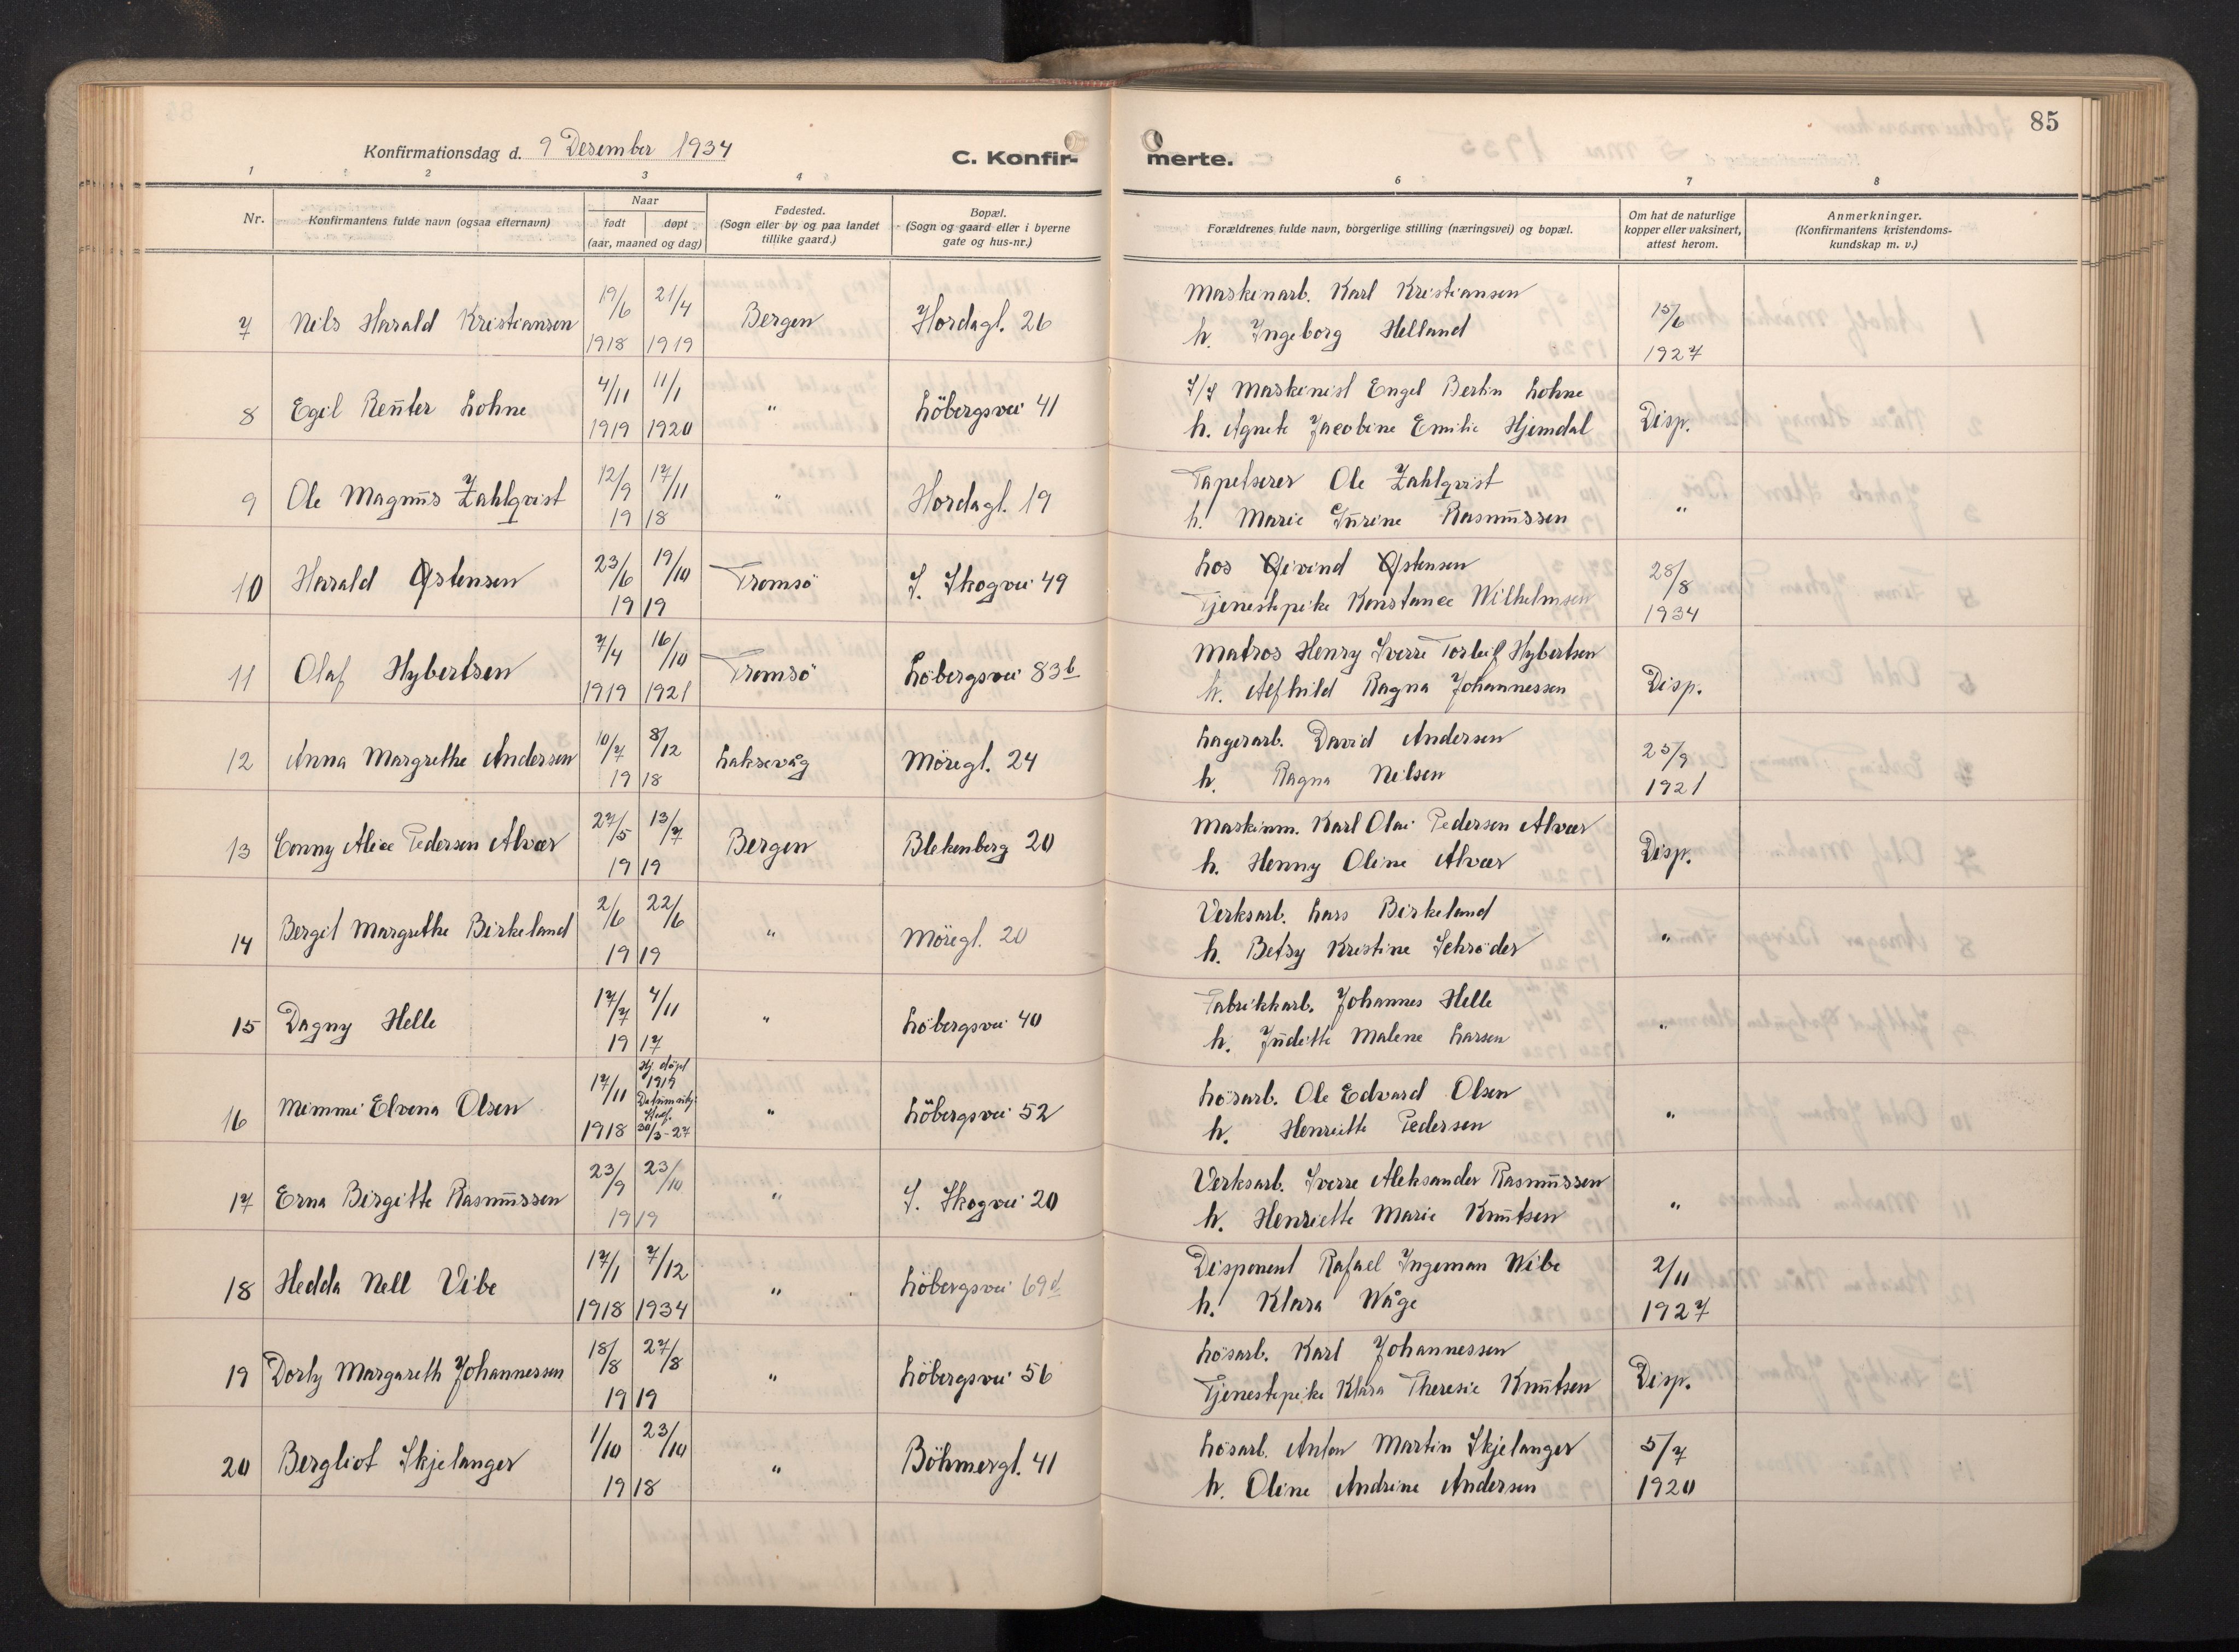 85
Konfirmationsdag d. 9 Desember 1934
C. Konfir- merte.
1 2 3 4 6 7 8
Nr. Konfirmantens fulde navn (ogsaa efternavn) Naar født døpt (aar, maaned og dag) Fødested. (Sogn eller by og paa landet tillike gaard.) Bopæl. (Sogn og gaard eller i byerne gate og hus-nr.) Forældrenes fulde navn, borgerlige stilling (næringsvei) og bopæl. Om hat de naturlige kopper eller vaksinert, attest herom. Anmerkninger. (Konfirmantens kristendoms- kundskap m. v.)
7 Nils Harald Kristiansen 19/6 1918 21/4 1919 Bergen Hordagt. 26 Maskinarb. Karl Kristiansen 15/6 1927
h. Ingeborg Helland
8 Egil Reūter Lohne 4/11 1919 11/1 1920 " Löbergsvei 41 Maskinist Engel Bertin Lohne Disp.
h. Agnete Jacobine Emilie Hjemdal
9 Ole Magnūs Zahlqvist 12/9 17/11 1918 " Hordagt. 19 Tapetserer Ole Zahlqvist "
h. Marie Jūrine Rasmūssen
10 Harald Østensen 23/6 19/10 1919 Tromsö S. Skogvei 49 Los Øivind Østensen 28/8 1934
Tjenestepike Konstance Wilhelmsen
11 Olaf Hybertsen 7/4 1919 16/10 1921 Tromsö Löbergsvei 83b Matros Henry Sverre Torleif Hybertsen Disp.
h. Alfhild Ragna Johannessen
12 Anna Margrethe Andersen 10/7 8/12 1918 Laksevåg Möregt. 24 Lagerarb. David Andersen 25/9 1921
h. Ragna Nilsen
13 Conny Alice Pedersen Alvær 27/5 13/7 1919 Bergen Blekenberg 20 Maskinm. Karl Olai Pedersen Alvær Disp.
h. Henny Oline Alvær
14 Bergit Margrethe Birkeland 2/6 22/6 1919 " Möregt. 20 Verksarb. Lars Birkeland "
h. Betsy Kristine Schröder
15 Dagny Helle 17/7 4/11 1917 " Löbergsvei 40 Fabrikkarb. Johannes Helle "
h. Jūditte Malene Larsen
16 Mimmi Elvena Olsen 17/11 1918 Hj. döpt 1919 30/3-27 " Löbergsvei 52 Lösarb. Ole Edvard Olsen "
h. Henriette Pedersen
17 Erna Birgitte Rasmūssen 23/9 23/10 1919 " S. Skogvei 20 Verksarb. Sverre Aleksander Rasmūssen "
h. Henriette Marie Knūtsen
18 Hedda Nell Vibe 17/1 1918 7/12 1934 " Löbergsvei 69d Disponent Rafael Ingeman Wibe 2/11 1927
h. Klara Wåge
19 Dorly Margareth Johannessen 18/8 27/8 1919 " Löbergsvei 56 Lösarb. Karl Johannessen Disp.
Tjenestepike Klara Theresie Knūtsen
20 Bergliot Skjelanger 1/10 23/10 1918 " Böhmergt. 41 Lösarb. Anton Martin Skjelanger 5/7 1920
h. Oline Andrine Andersen